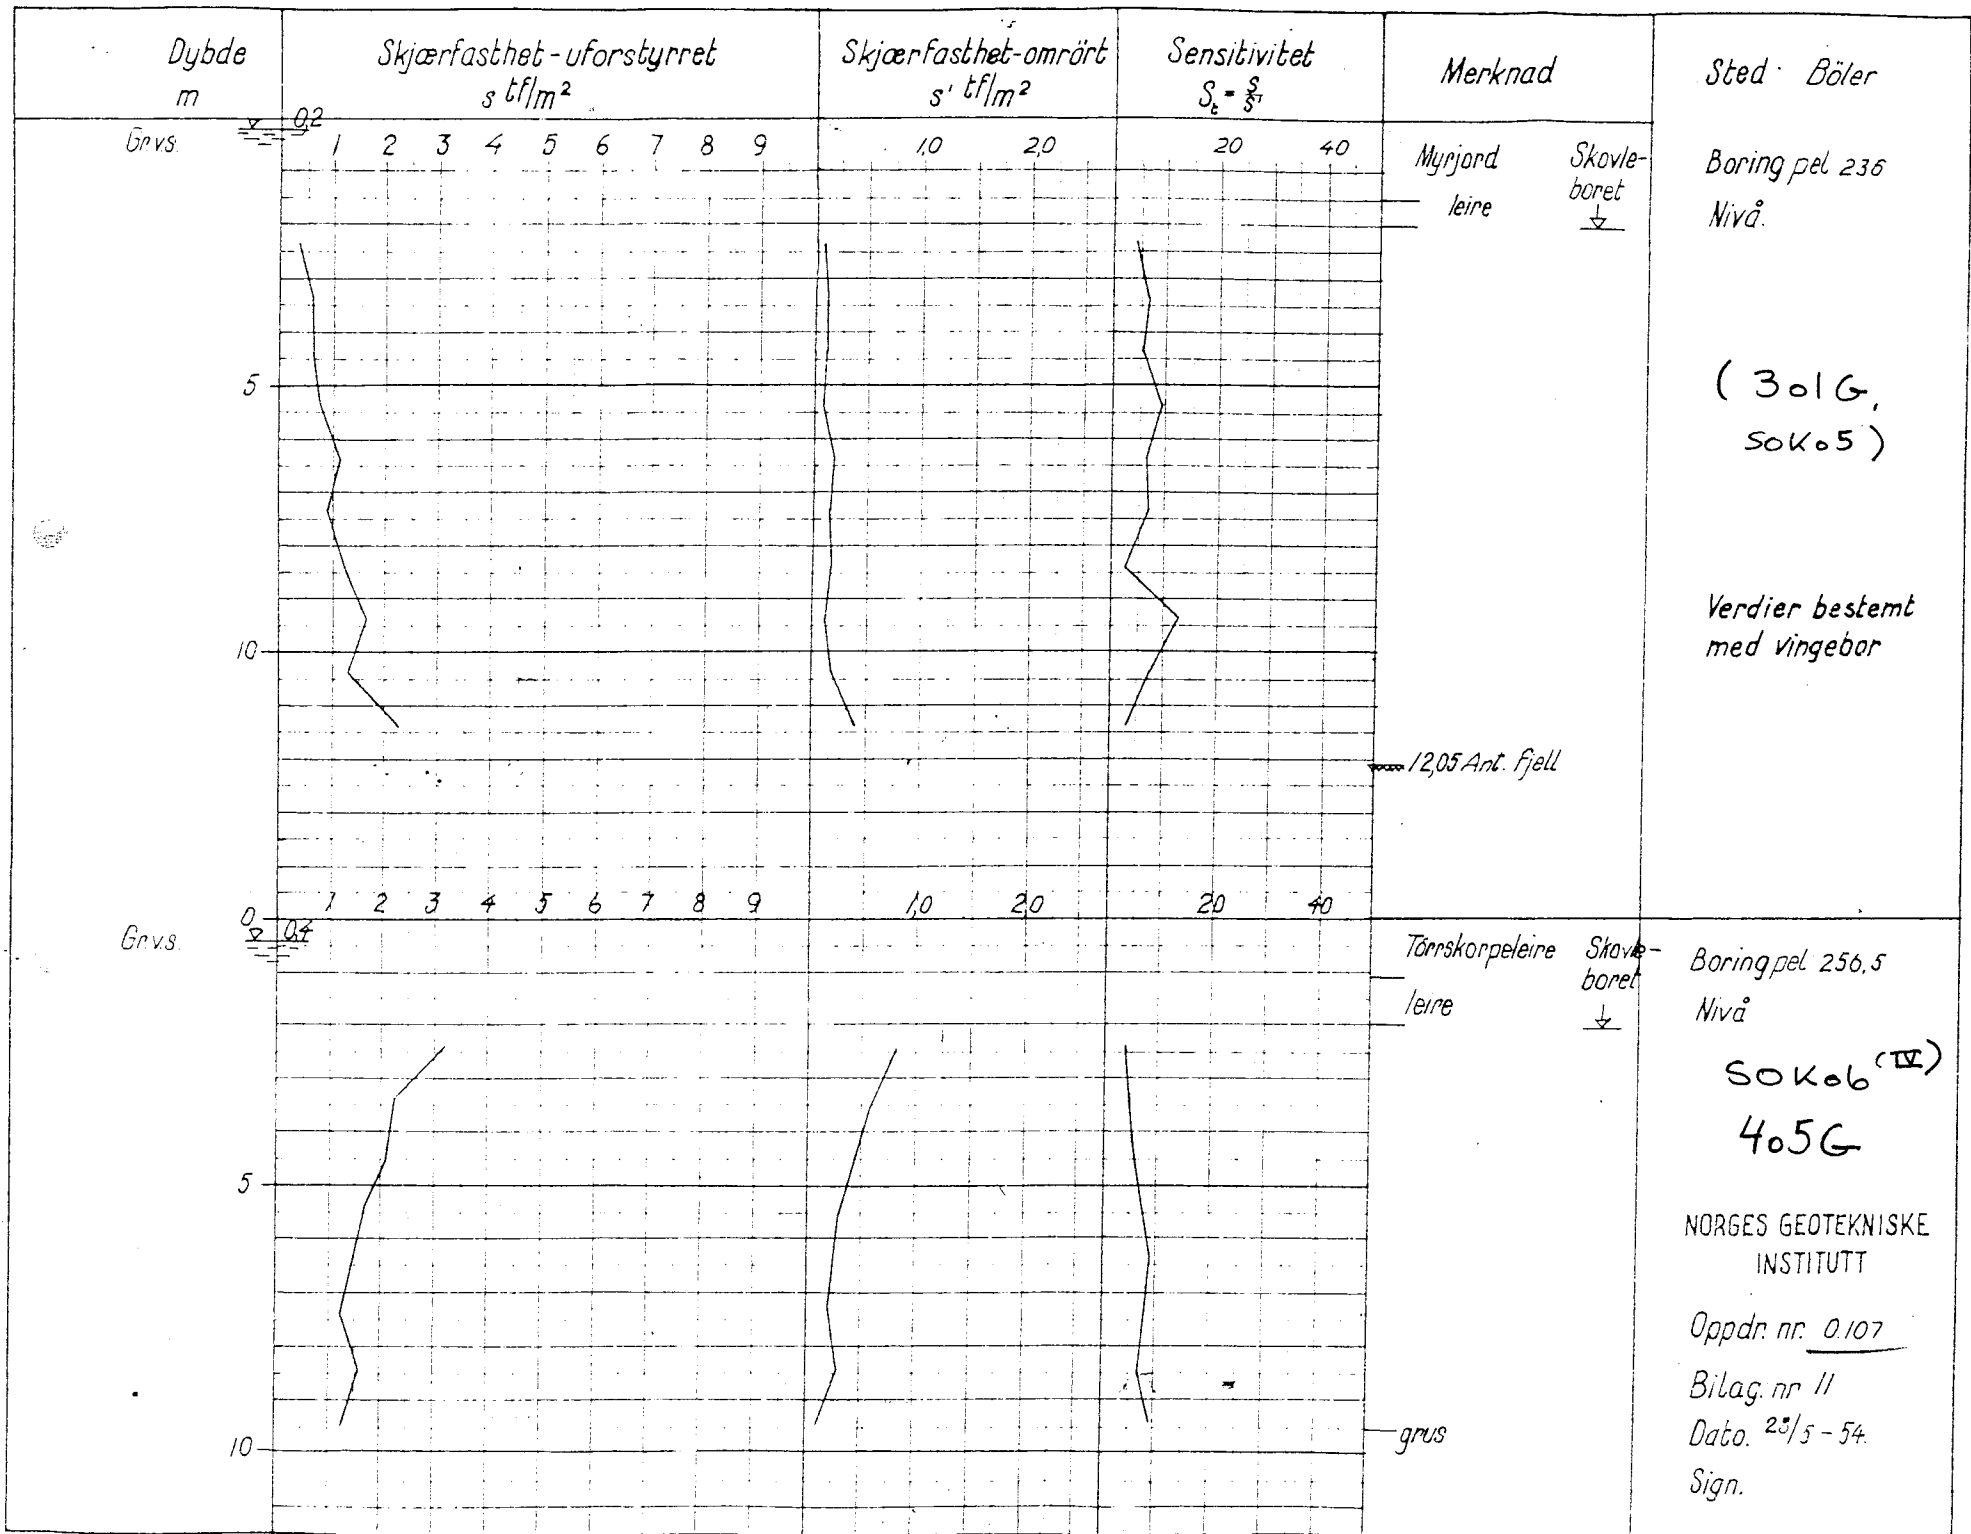 Dybde
m
Skjærfasthet - uforstyrret
s tf/m²
Skjærfasthet-omrört
s' tf/m²
Sensitivitet
Sₜ = s/s'
Merknad
Sted: Böler
Grvs.
0,2
1 2 3 4 5 6 7 8 9
1,0 2,0
20 40
Myrjord
leire
Skovle-
boret
Boring pel 236
Nivå.
5
(301G,
SOK05)
Verdier bestemt
med vingebor
10
12,05 Ant. fjell
0
1 2 3 4 5 6 7 8 9
1,0 2,0
20 40
Grvs.
0,4
Törrskorpeleire
leire
Skovle-
boret
Boring pel 256,5
Nivå
SOK06 (IV)
405G
5
NORGES GEOTEKNISKE
INSTITUTT
Oppdr. nr. 0.107
Bilag. nr 11
10
grus
Dato. 25/5 - 54.
Sign.